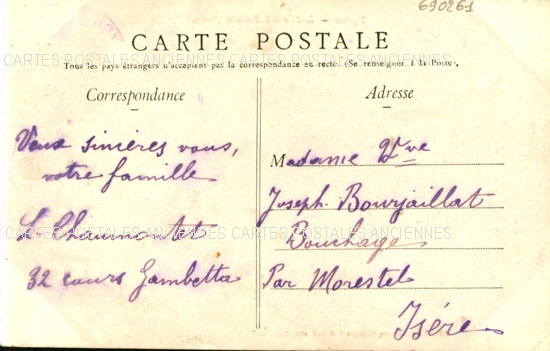 690261
CARTE POSTALE
CARTES POSTALES ANCIENNES CARTES POSTALES ANCIENNES
Tous les pays étrangers n'acceptent pas la correspondance au recto. (Se renseigner à la Poste).
Correspondance
Vœux sincères vous,
votre famille
32 cours Gambetta
Adresse
Madame Vve
Joseph Bourjaillat
Bouchage
Par Morestel
Isère
CARTES POSTALES ANCIENNES CARTES POSTALES ANCIENNES